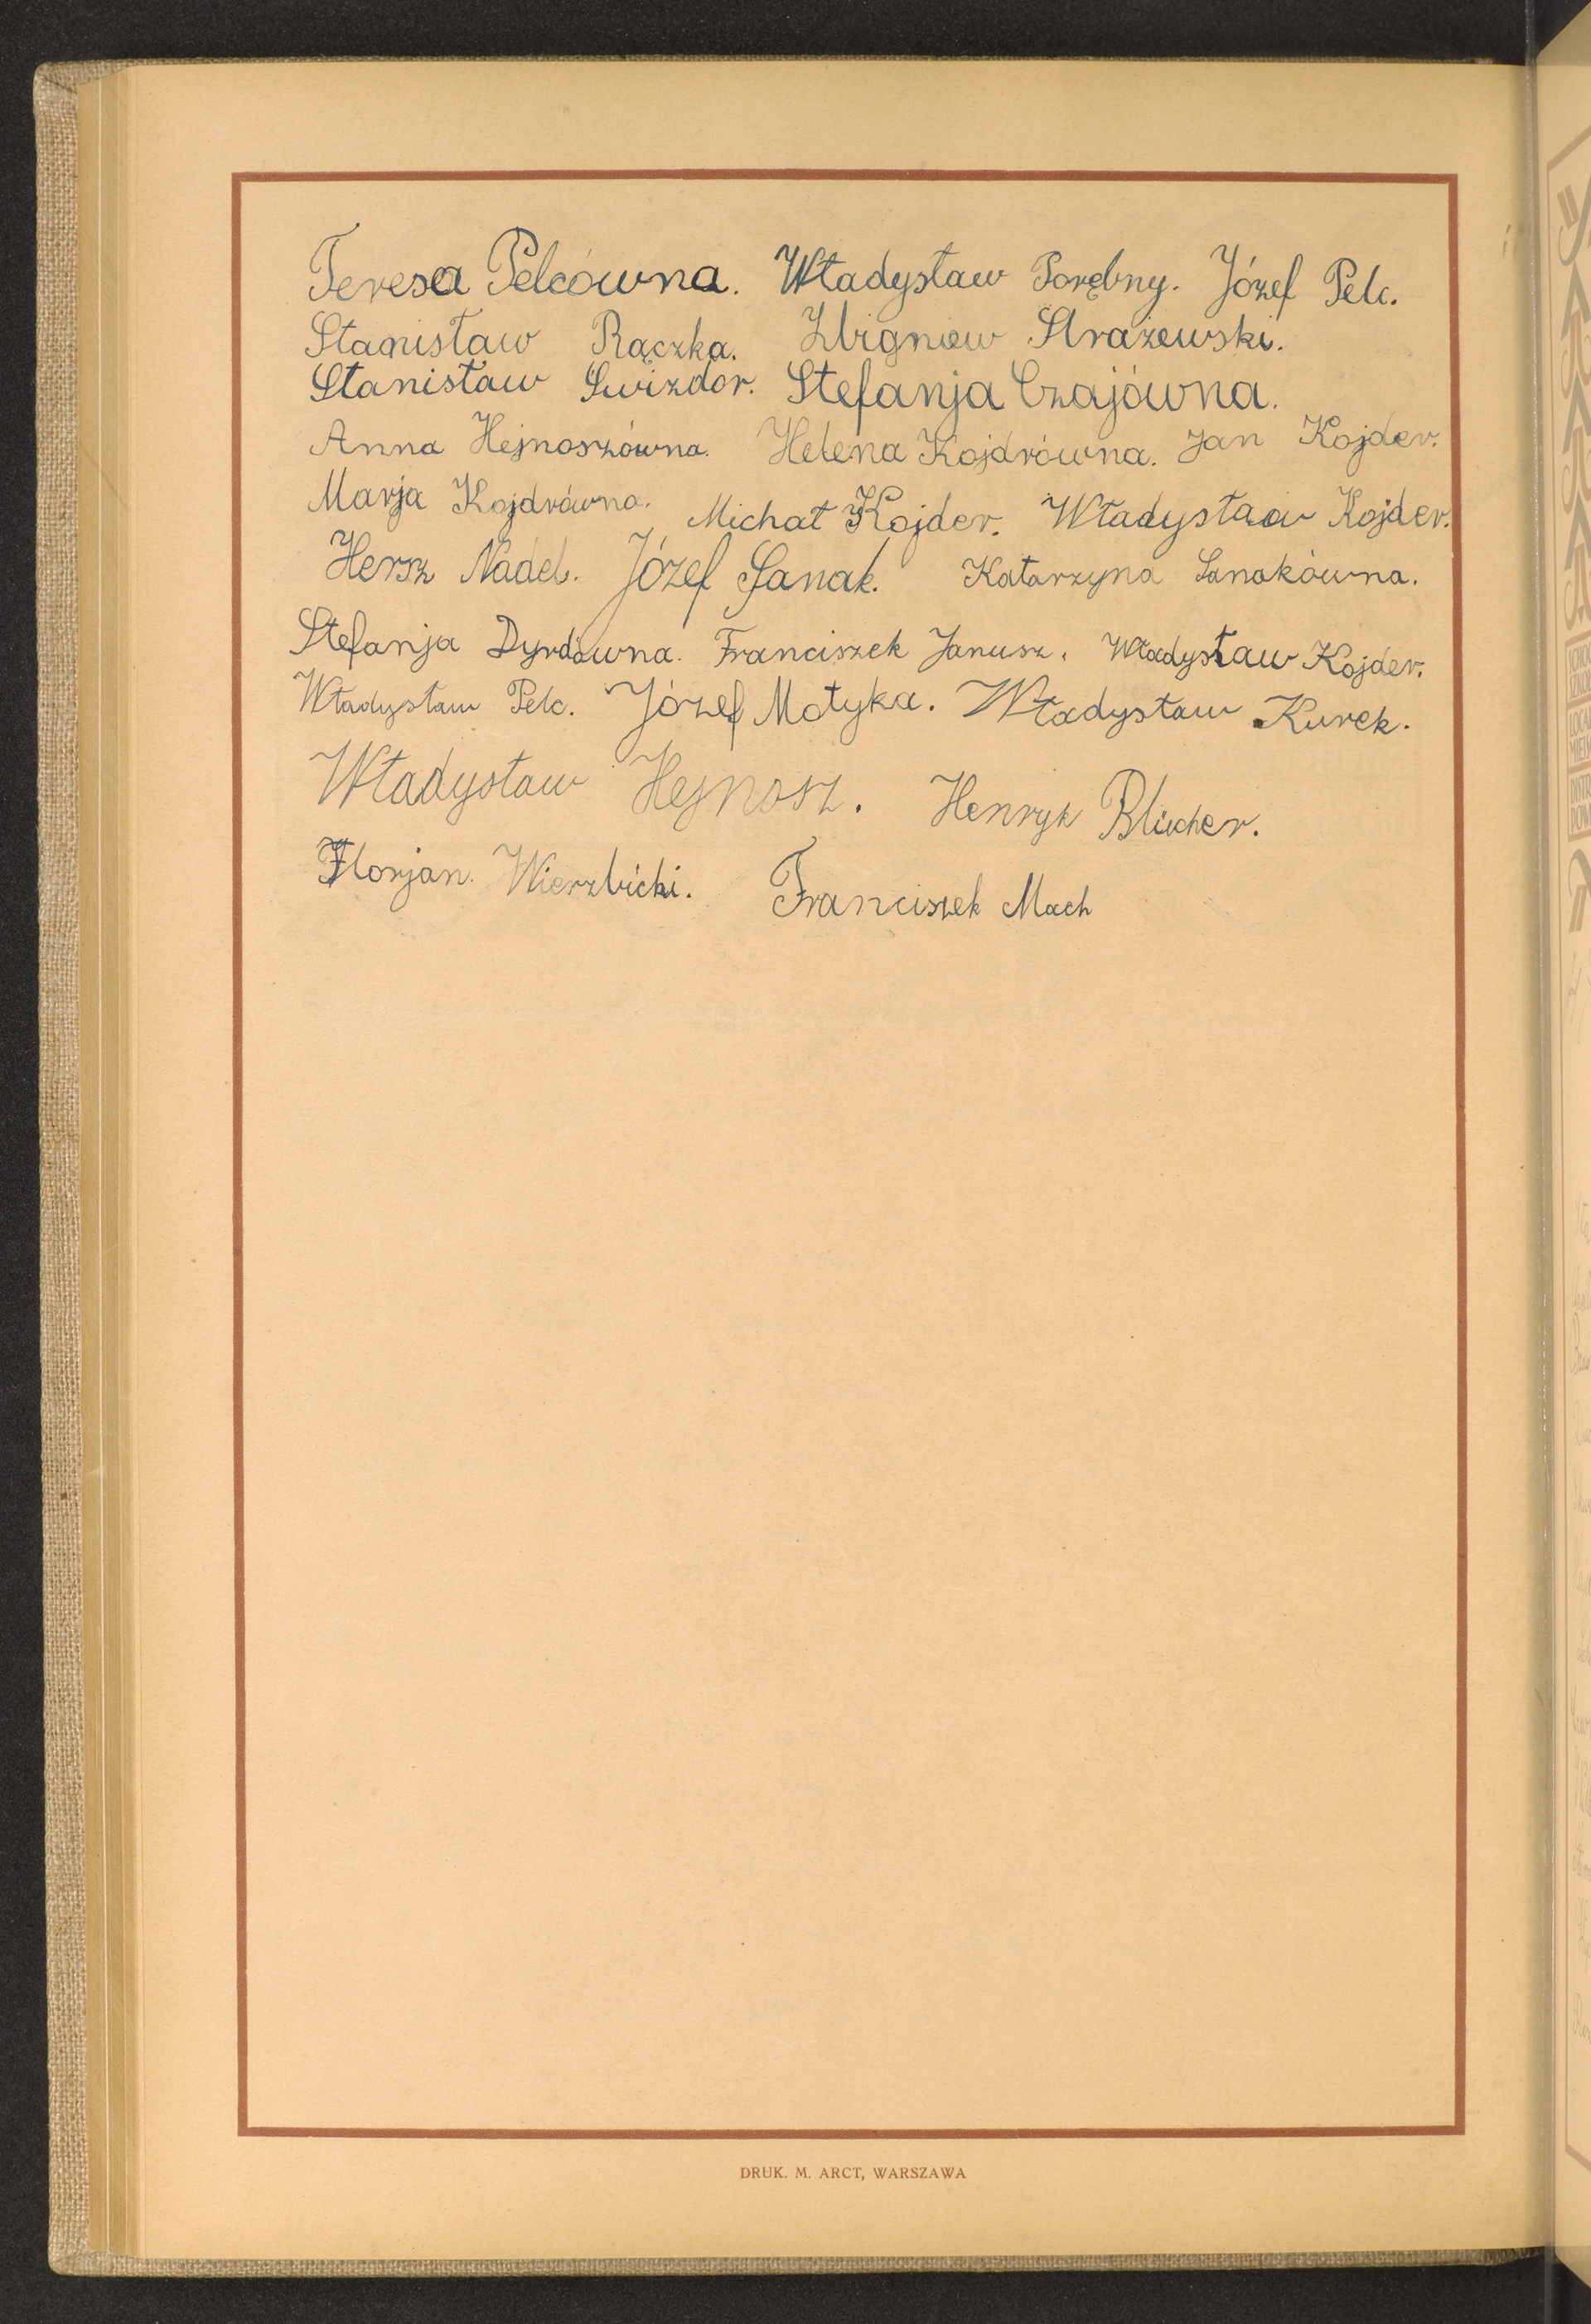 Teresa Pelcówna. Władysław Porębny. Józef Pelc.
Stanisław Rączka. Zbigniew Strażewski.
Stanisław Świzdor. Stefanja Czajówna.
Anna Hejnoszówna. Helena Kojdrówna. Jan Kojder.
Marja Kojdrówna. Michał Kojder. Władysław Kojder.
Hersz Nadel. Józef Sanak. Katarzyna Sanakówna.
Stefanja Dyrdówna. Franciszek Janusz. Władysław Kojder.
Władysław Pelc. Józef Motyka. Władysław Kurek.
Władysław Hejnosz. Henryk Blücher.
Florjan Wierzbicki. Franciszek Mach
DRUK. M. ARCT, WARSZAWA